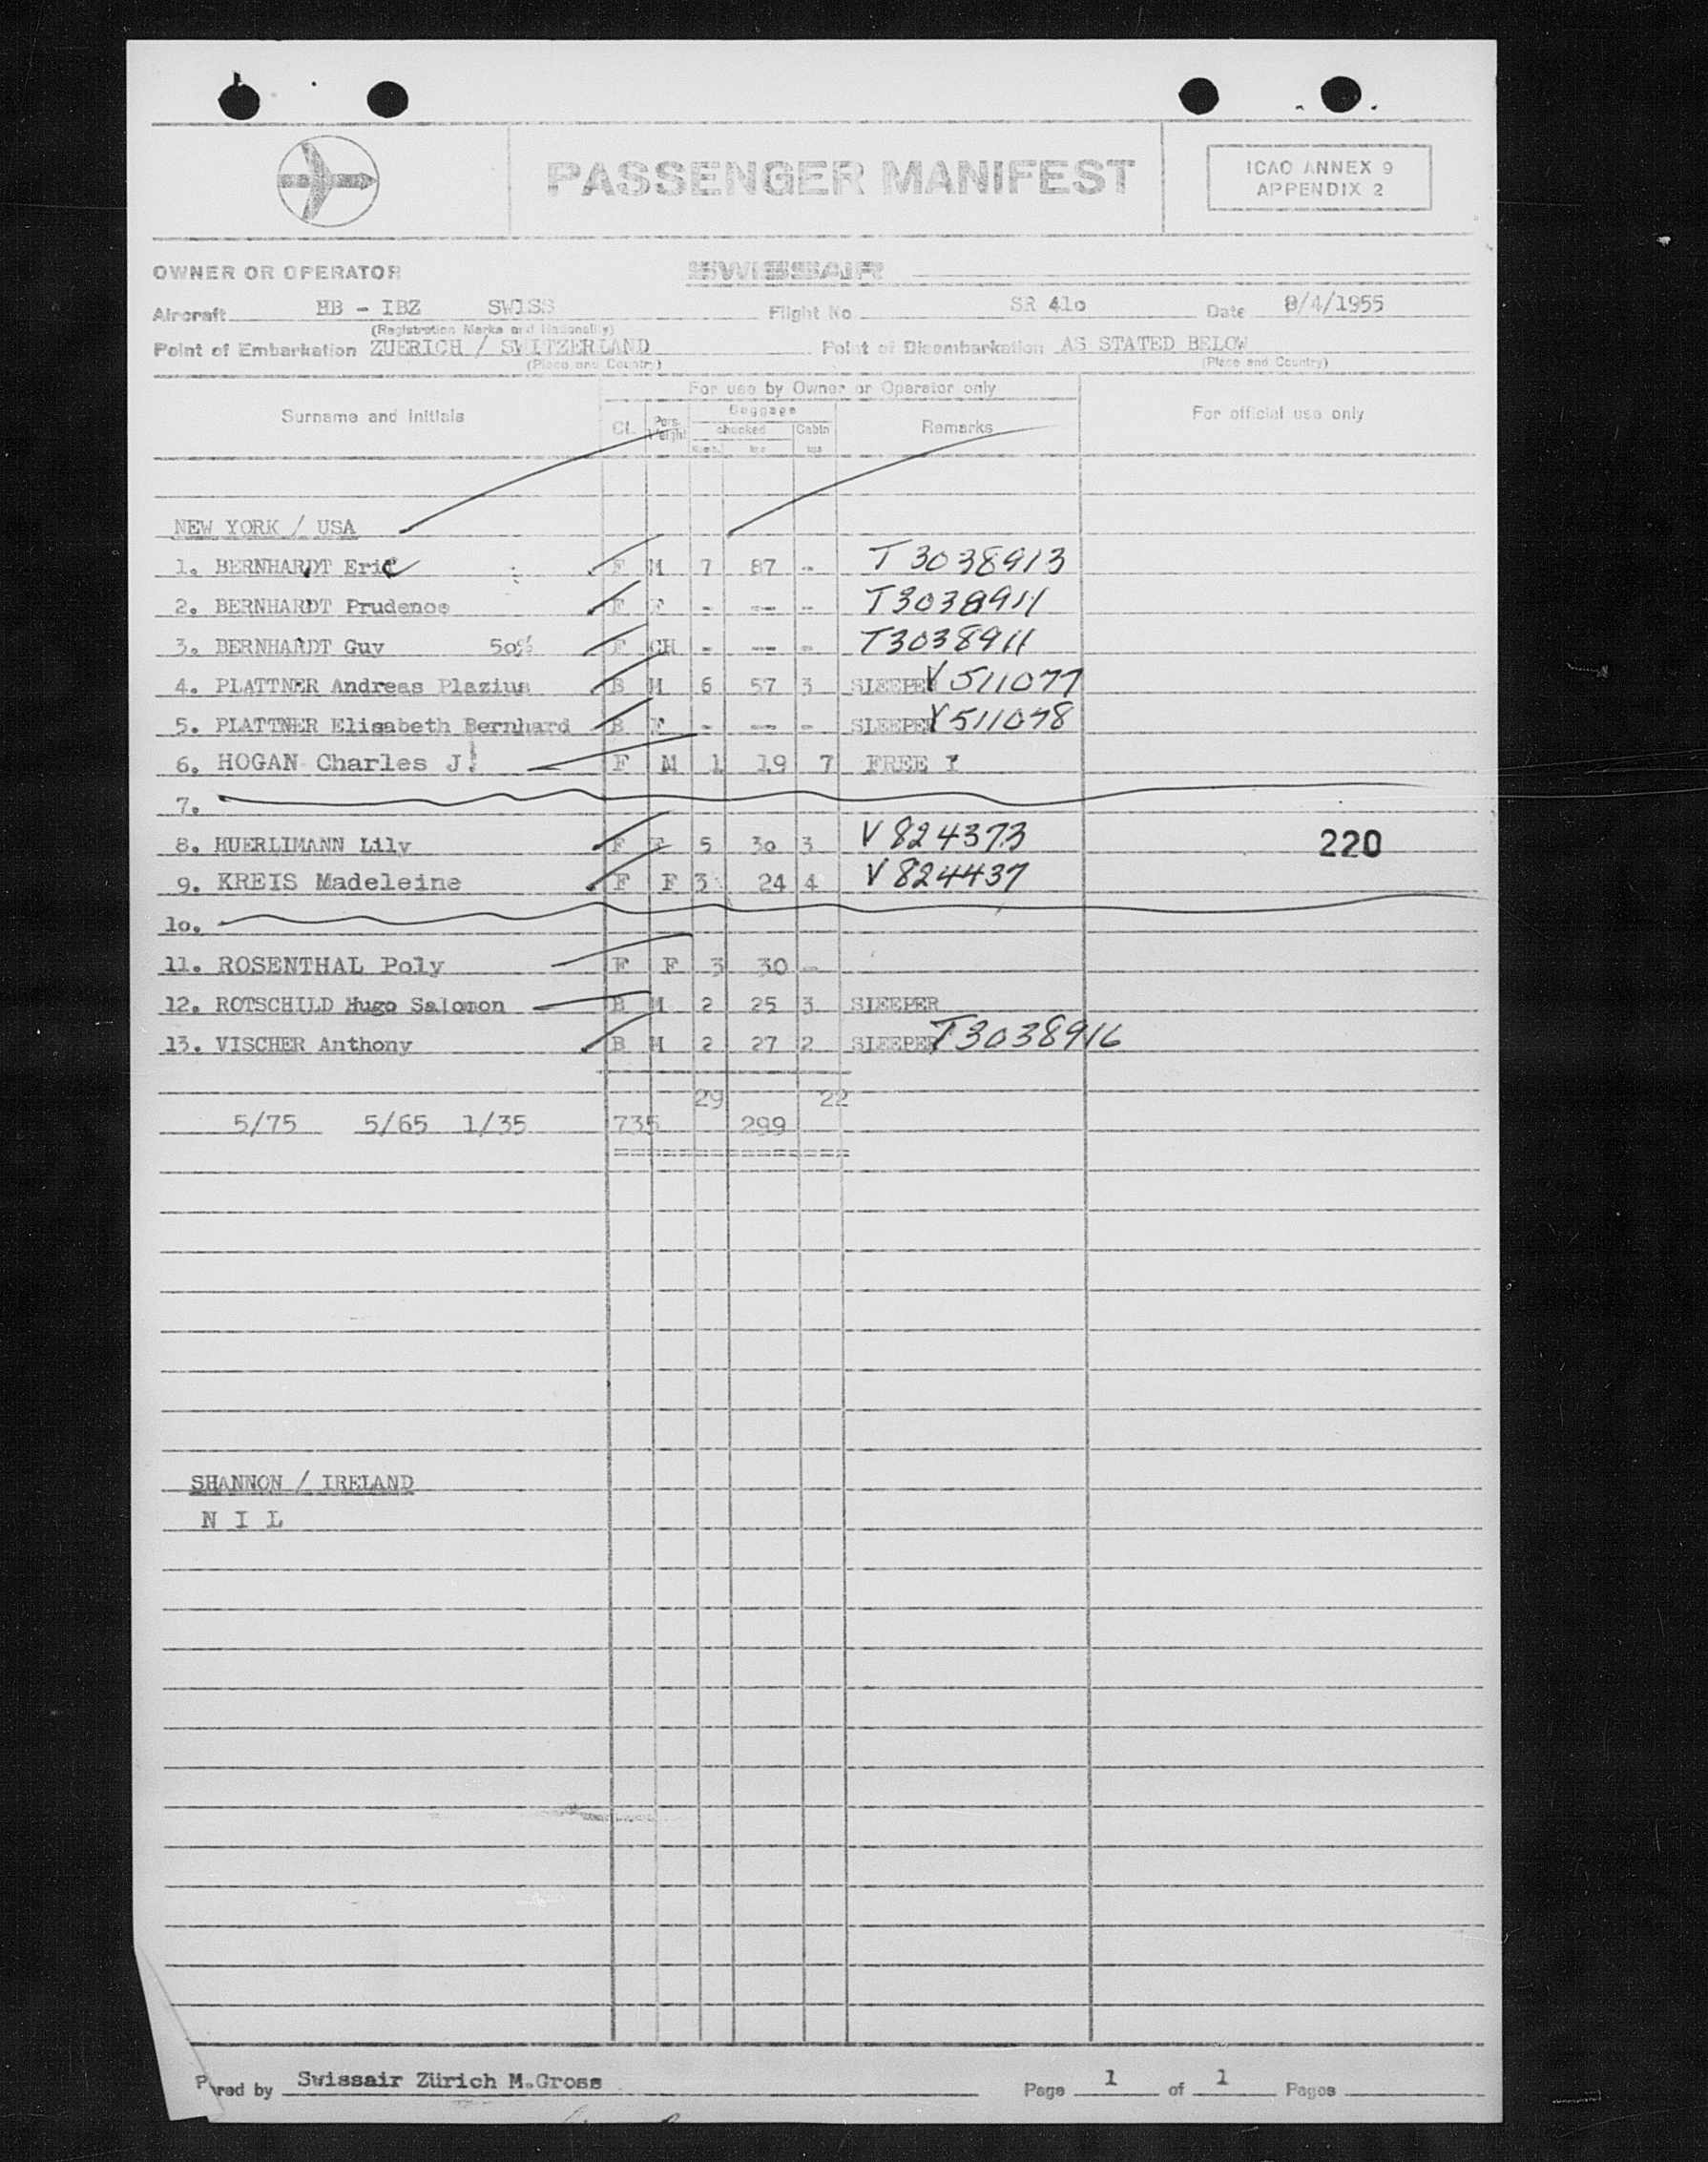 PASSENGER MANIFEST
ICAO ANNEX 9
APPENDIX 2
OWNER OR OPERATOR SWISSAIR
Aircraft HB - IBZ SWISS Flight No SR 41o Date 8/4/1955
(Registration Marks and Nationality)
Point of Embarkation ZUERICH / SWITZERLAND Point of Disembarkation AS STATED BELOW
(Place and Country) (Place and Country)
For use by Owner or Operator only
Surname and Initials Cl. Pers. Weight Baggage checked Cabin Remarks For official use only
NEW YORK / USA
1. BERNHARDT Eric F M 7 87 - T 3038913
2. BERNHARDT Prudence F F - -- - T3038911
3. BERNHARDT Guy 5o% F CH - -- - T3038911
4. PLATTNER Andreas Plazius B M 6 57 3 SLEEPER V 511077
5. PLATTNER Elisabeth Bernhard B F - -- - SLEEPER V511078
6. HOGAN Charles J. F M 1 19 7 FREE I
7.
8. HUERLIMANN Lily F F 5 3o 3 V 824373 220
9. KREIS Madeleine F F 3 24 4 V 824437
1o.
11. ROSENTHAL Poly F F 3 30 -
12. ROTSCHILD Hugo Salomon B M 2 25 3 SLEEPER
13. VISCHER Anthony B M 2 27 2 SLEEPER T3038916
29 22
5/75 5/65 1/35 735 299
SHANNON / IRELAND
N I L
Swissair Zürich M.Gross
red by Page 1 of 1 Pages